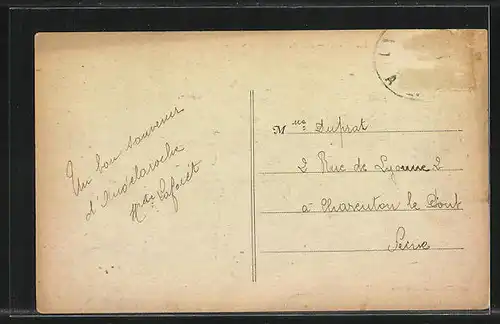 Un bon souvenir
d'Andelaroche
Laforêt
Mlle Duprat
2 Rue de Lyonne 2
à Charenton le Pont
Seine